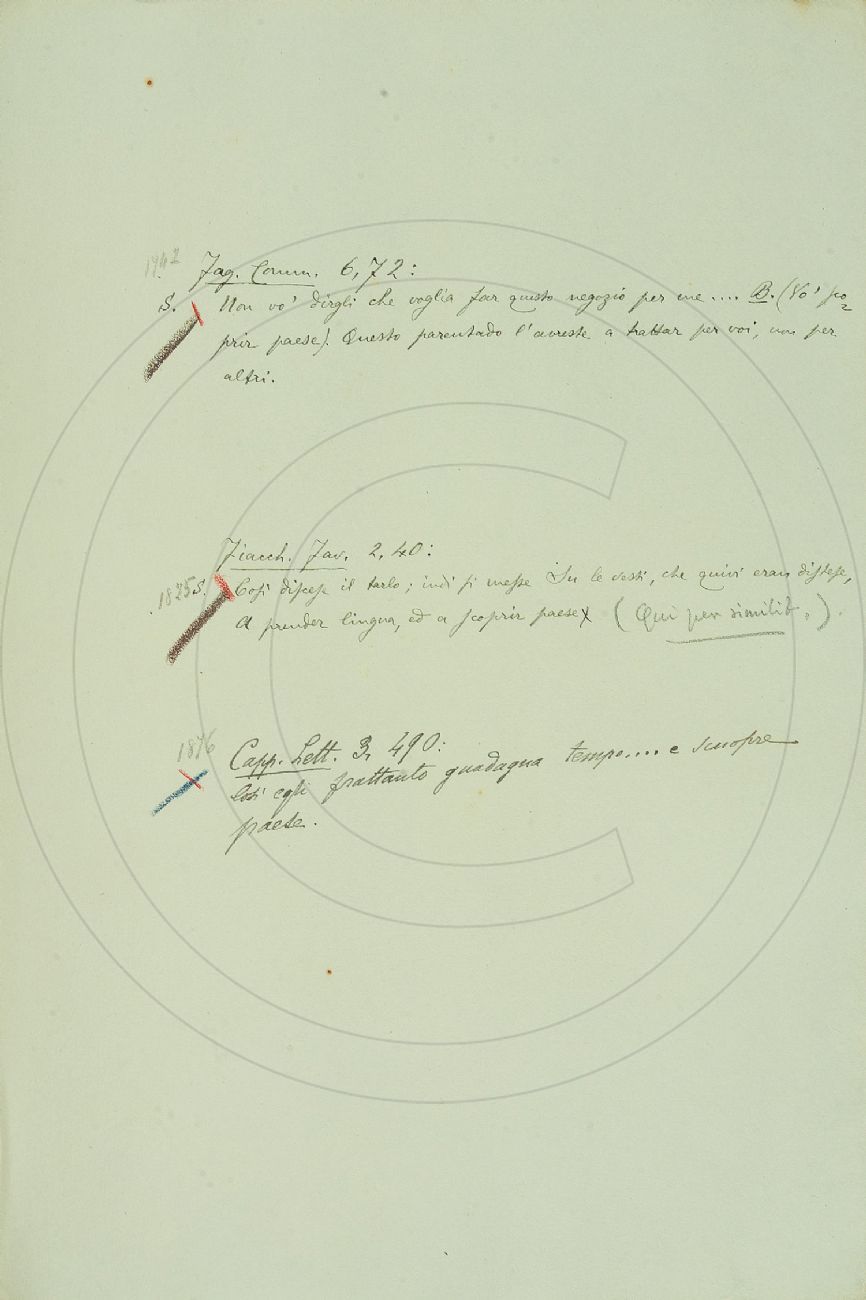 Fag. Comm. 6, 72:
S. Non vo' dirgli che voglia far questo negozio per me .... B. (Vo' sco=
prir paese). Questo parentado l'avreste a trattar per voi, non per
altri.
Fiacch. Fav. 2, 40:
1825 S. Così discese il tarlo; indi si messe Su le vesti, che quivi eran distese,
A prender lingua, ed a scoprir paese (Qui per similit.).
1876
Capp. Lett. 3, 490:
Così egli frattanto guadagna tempo.... e scuopre
paese.